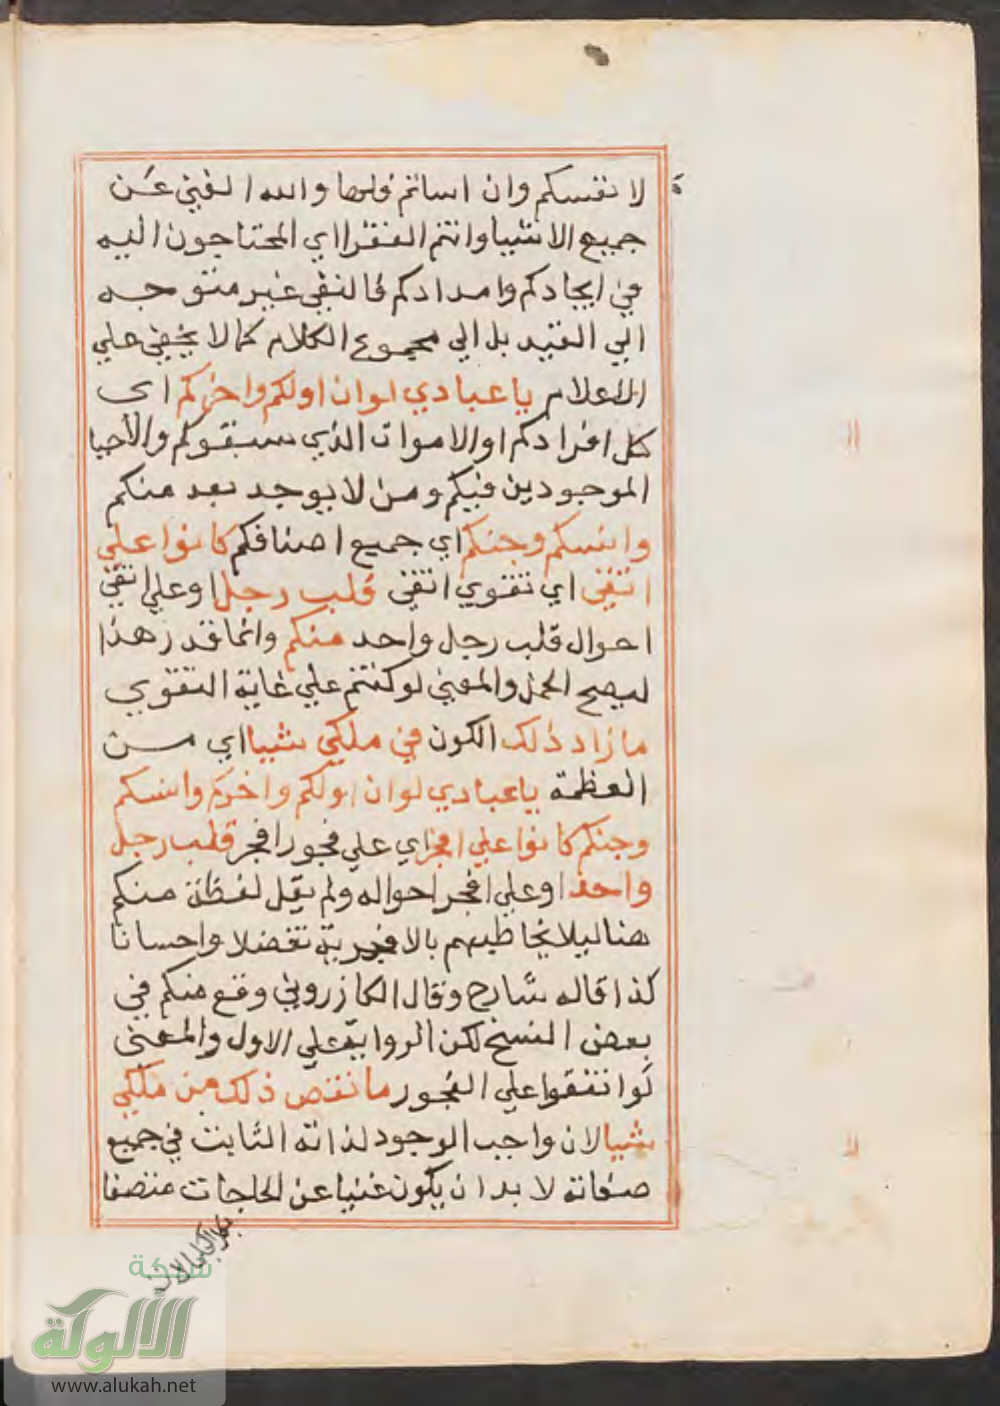 لانفسكم وان اساتم فلها والله الغني عن
جميع الاشيا وانتم الفقرا اي المحتاجون اليه
في ايجادكم وامدادكم فالنفي غير متوجه
الي القيد بل الي مجموع الكلام كما لا يخفي علي
الاعلام يا عبادي لو ان اولكم واخركم اي
كل افرادكم او الاموات الذي سبقوكم والأحيا
الموجودين فيكم ومن لا يوجد بعد منكم
وانسكم وجنكم اي جميع اصنافكم كانوا علي
اتقي اي تقوي اتقي قلب رجل او علي اتقي
احوال قلب رجل واحد منكم وانما قدر هذا
ليصح الحمل والمعني لو كنتم علي غاية التقوي
ما زاد ذلك الكون في ملكي شيا اي من
العظمة يا عبادي لو ان اولكم واخركم وانسكم
وجنكم كانوا علي افجر اي علي فجور افجر قلب رجل
واحد او علي افجر احواله ولم يقل لفظة منكم
هنا ليلا يخاطبهم بالافجرية تفضلا واحسانا
كذا قاله شارح وقال الكازروني وقع منكم في
بعض النسخ لكن الرواية علي الاول والمعني
لو اتفقوا علي الفجور ما نقص ذلك من ملكي
شيا لان واجب الوجود لذاته الثابت في جميع
صفاته لا بد ان يكون غنيا عن الحاجات متصفا
شبكة
الألوكة
www.alukah.net